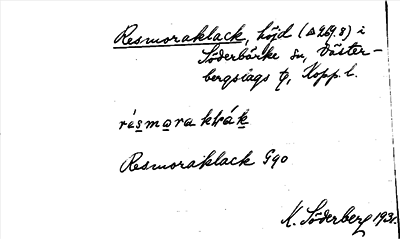 Resmoraklack, höjd (Δ 469.8) i
Söderbärke sn, Väster-
bergslags tg, Kopp. l.
résmora klák
Resmoraklack G90
K. Söderberg 1931.